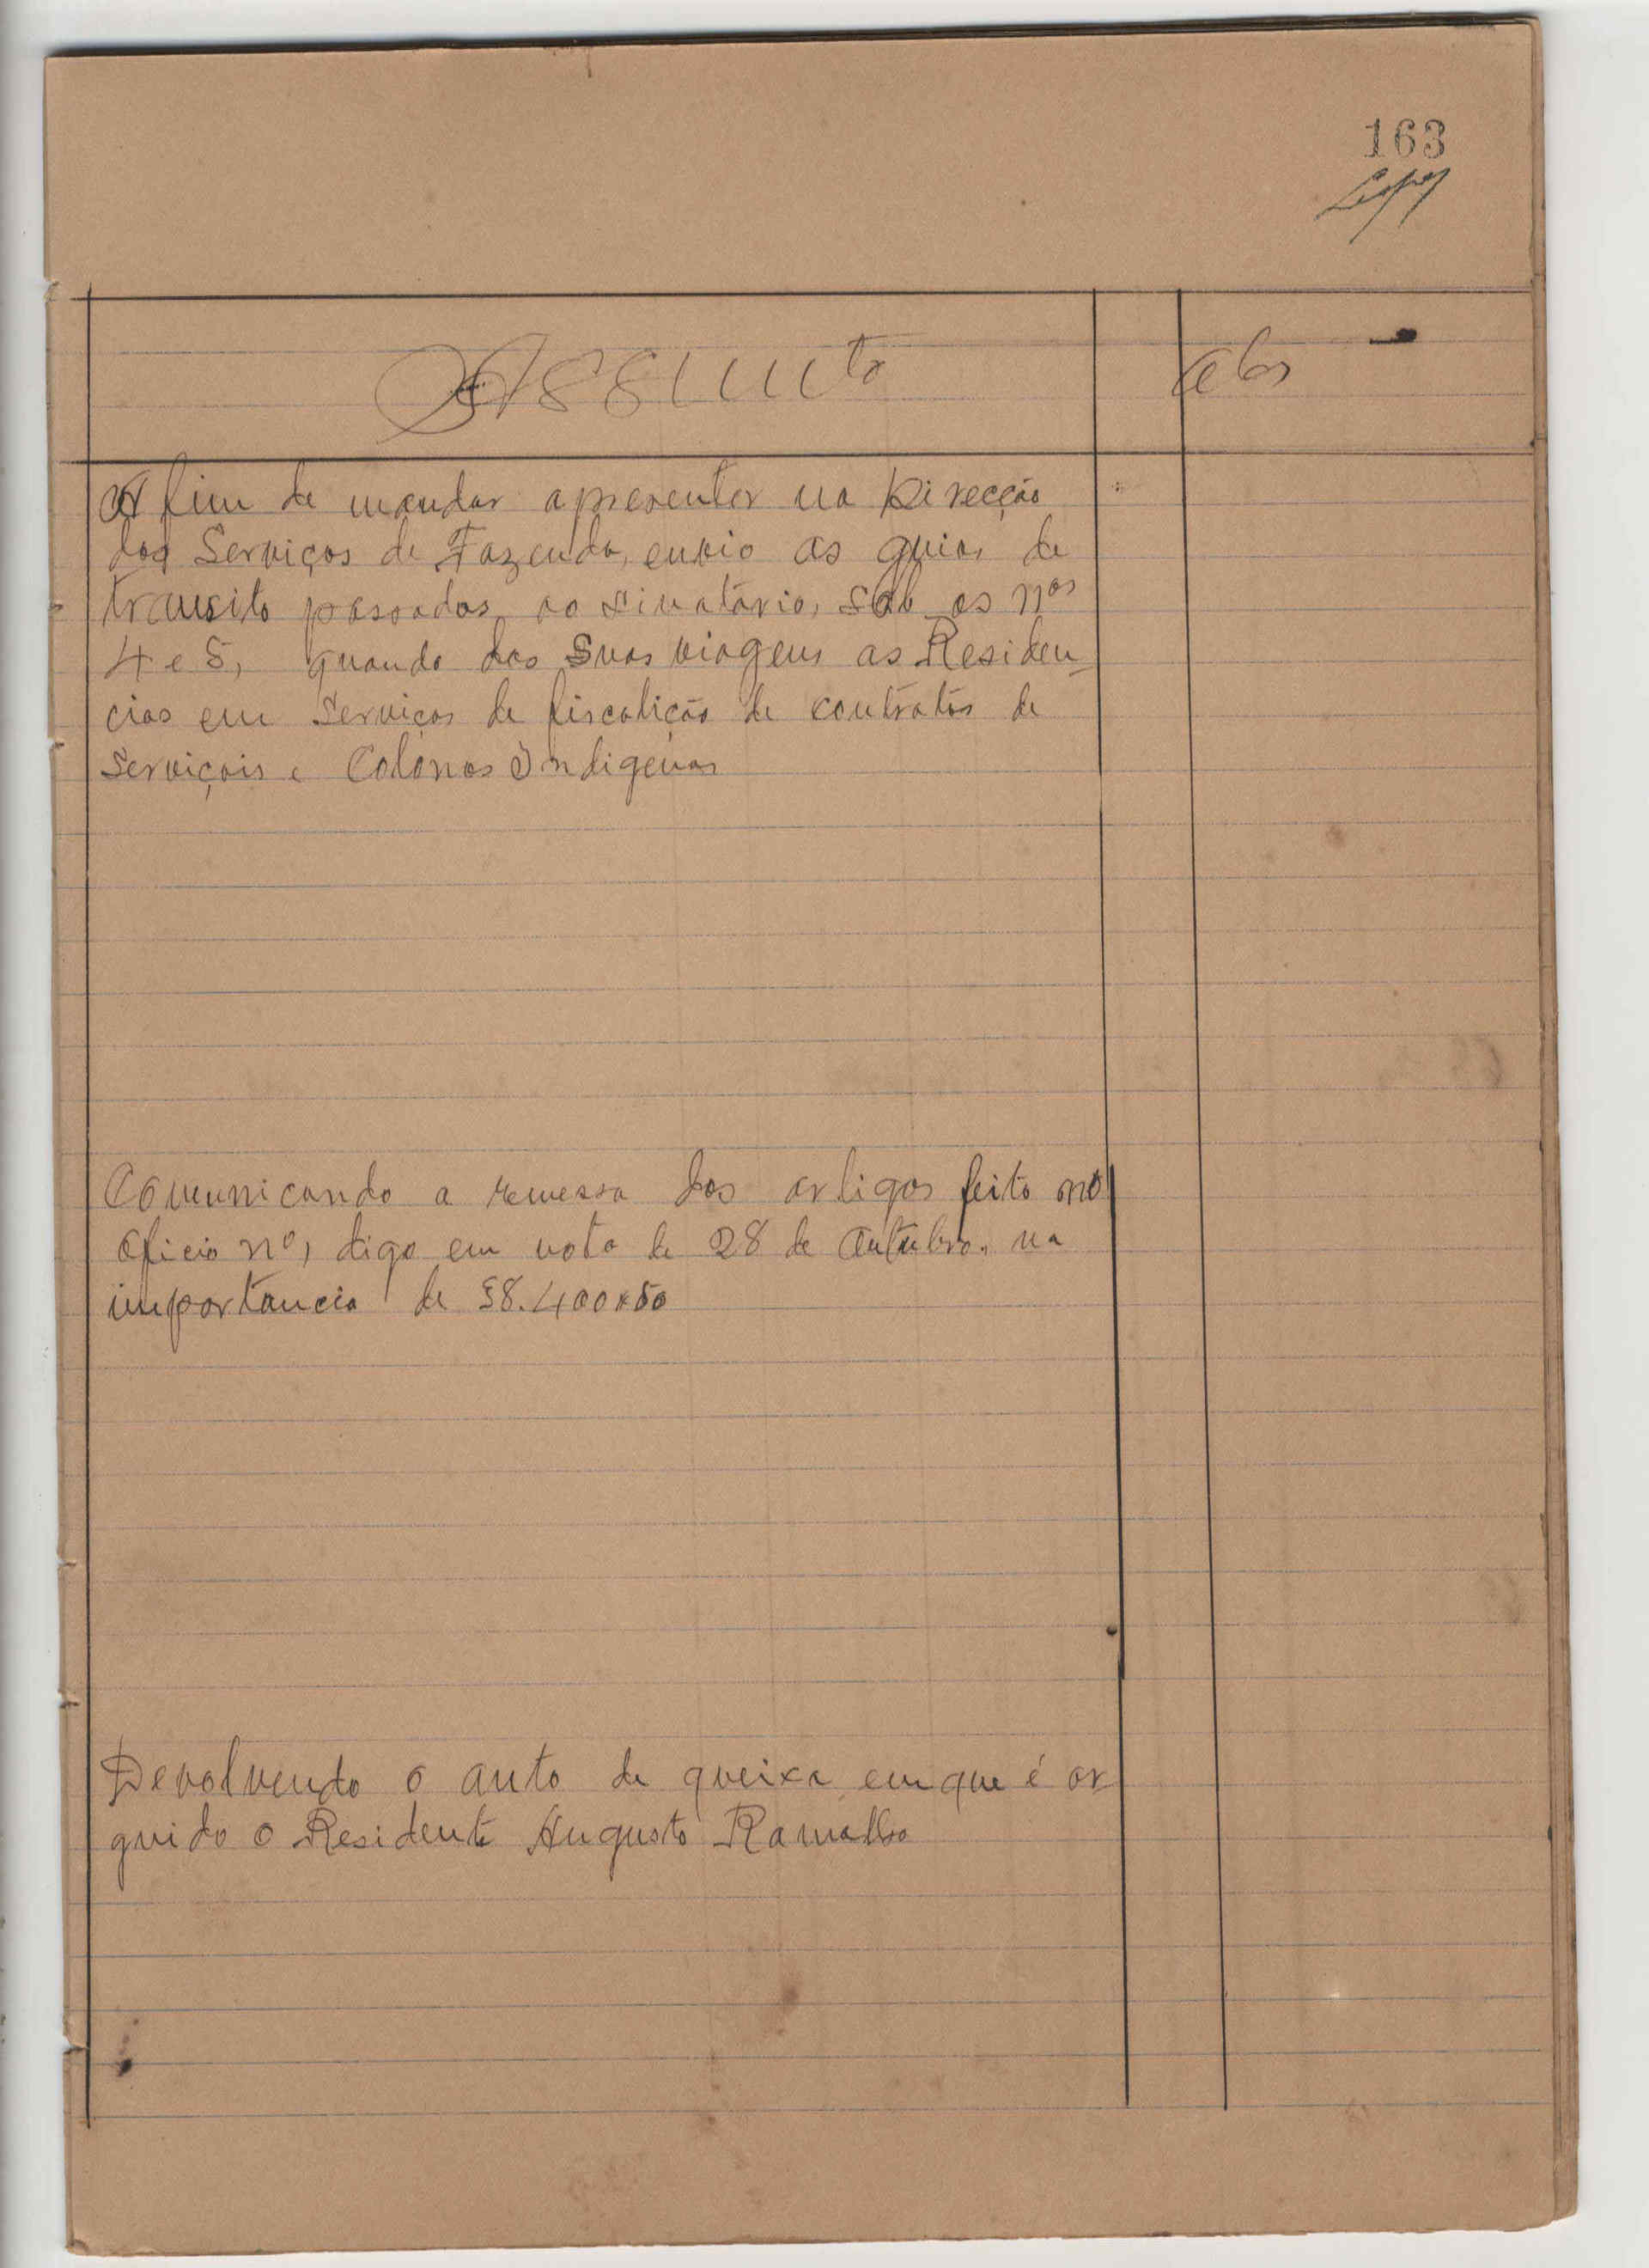 163
Assunto
A fim de mandar apresentar na Direcção
dos Serviços de Fazenda, envio as guias de
transito passadas ao sinatário, sob os nos
4 e 5, quando das suas viagens as Residen
cias em Serviços de fiscalição de contratos de
Serviçais e Colonos Indigenas
Comunicando a remessa dos artigos feito no
Oficio nº, digo em nota de 28 de Outubro, na
importancia de
Devolvendo o auto de queixa em que é ar
guido o Residente Augusto Ramalho